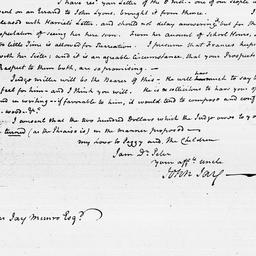 I have recd. your Letter of the 8 inst. – one of our people
sent on an Errand to John Lyons, brought it from your House. I
pleased with Harriets Letter, and should not delay answering, but for the
expectation of seeing her here soon. From her account of School Hours,
so little Time is allowed for Recreation. I presume that Frances
with her Sister; and it is an agreeable circumstance, that your Prospects
Respect to them both, are so promising. –
Judge Miller will be the Bearer of this – He will have much to say
feel for him – and I think you will. He is sollicitous to have your
and in working – if favorable to him, it would tend to compose and
-wood &c.
I consent that the two hundred Dollars which the Judge owes to
turned (as the Phrase is) in the manner proposed –
my Love to Peggy and the Children
I am Dr. Peter
Your affte. uncle
John Jay –
Jay Munro Esqr.